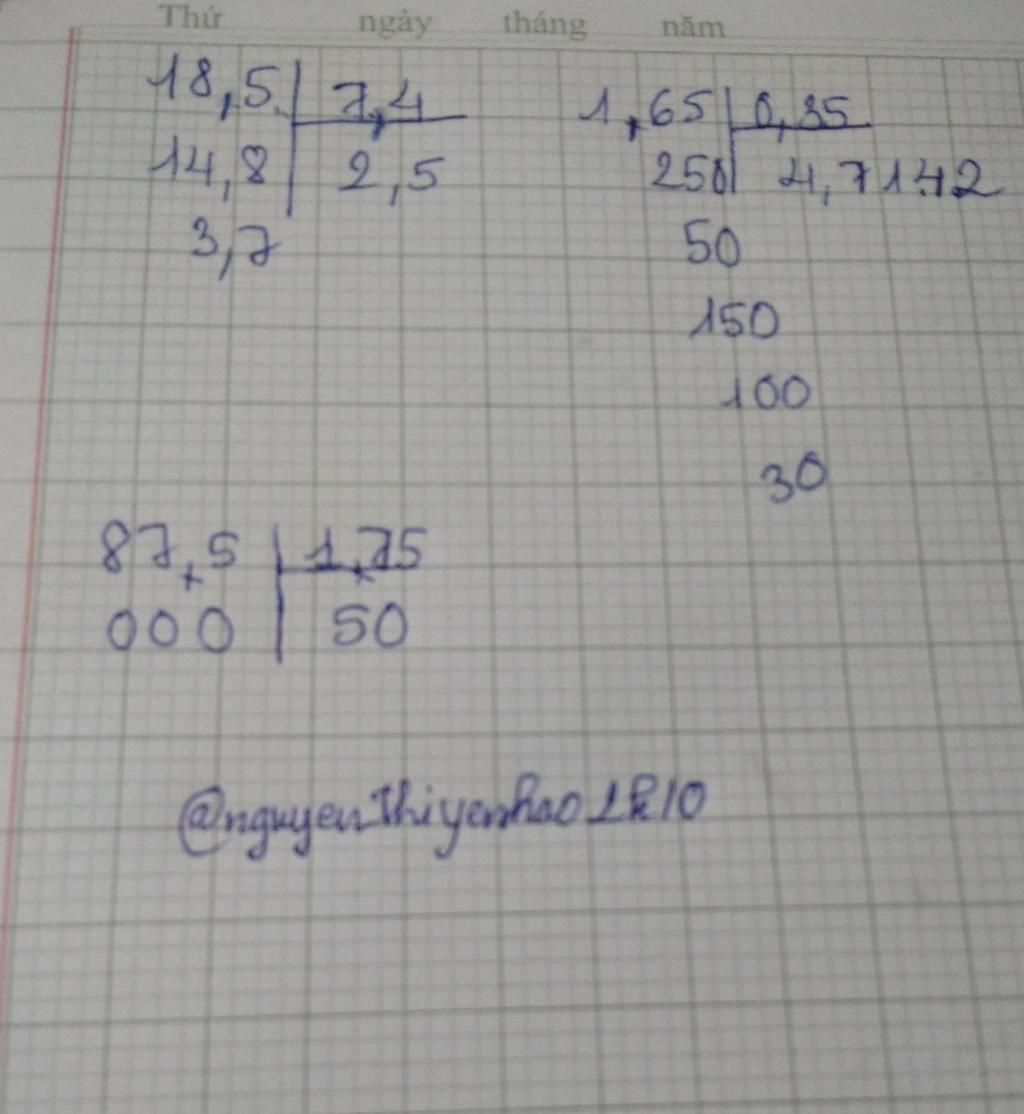 Thứ ngày tháng năm
18,5 7,4
14,8 2,5
3,7
1,65 0,35
250 4,7142
50
150
100
30
87,5 1,75
000 50
@nguyenthiyenhao1k10